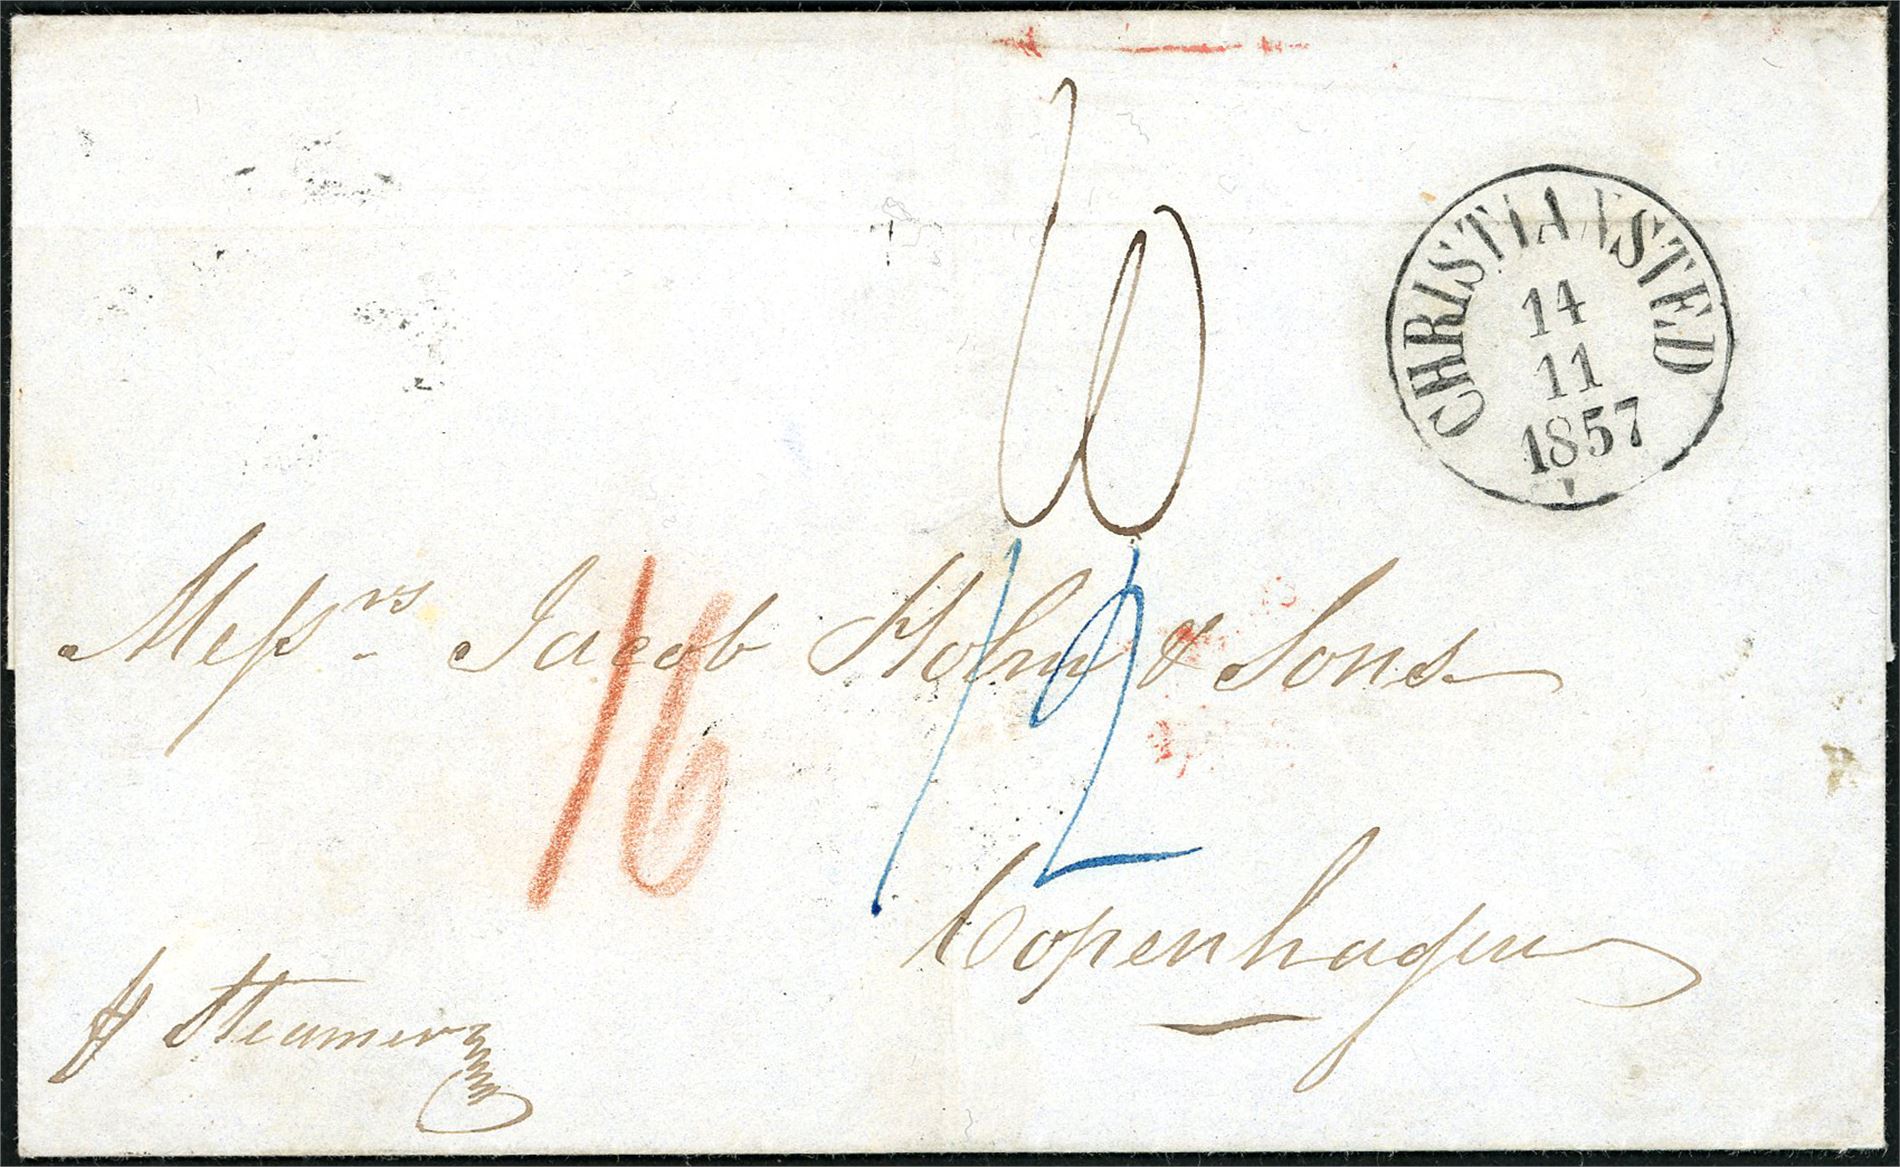 CHRISTIANSTED
14
11
1857
Messrs Jacob Holm & Sons
16
12
Copenhagen
pr Steamer